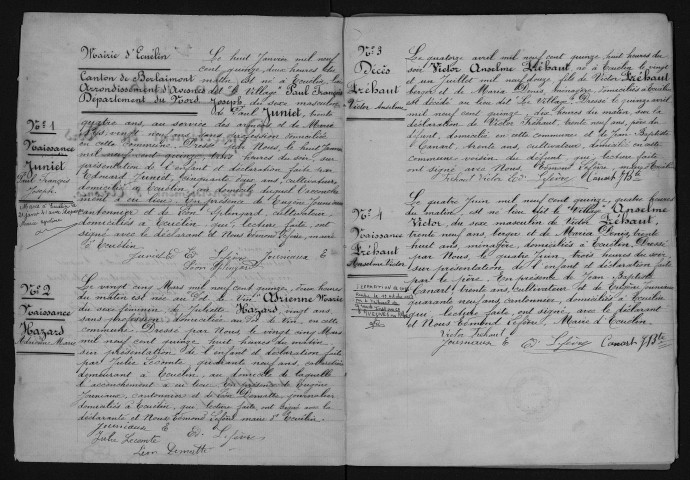 Mairie d'Ecuélin
Canton de Berlaimont
Arrondissement d'Avesnes
Département du Nord
N° 1
Naissance
Juniet
Paul François
Joseph
Le huit Janvier mil neuf
cent quinze, deux heures du
matin est né à Ecuélin
dit Le Village Paul François
Joseph du sexe masculin
de Paul Juniet, trente
quatre ans, au service des armées et de Maria
vingt neuf ans, sans profession domiciliés
en cette commune. Dressé par Nous le huit Janvier
mil neuf cent quinze heures du soir, sur
présentation de l'enfant et déclaration faite par
Edouard Juniet, cinquante ans, cultivateur,
domicilié à Ecuélin, au domicile duquel l'accouche
ment a eu lieu. En présence de Eugène Journeaux
cantonnier et de Léon Splingard, cultivateur,
domiciliés à Ecuélin, qui, lecture faite, ont
signé avec le déclarant et Nous Edmond Lefèvre, maire
à Ecuélin
Juniet E Ed. Lefèvre Journeaux E
Léon Splingard
N° 2
Naissance
Hazard
Adrienne Marie
Le vingt cinq Mars mil neuf cent quinze, heures
du matin est née au Pot de Vin, Adrienne Marie
du sexe féminin de Juliette Hazard, vingt ans,
sans profession, domiciliée au Pot de Vin, en cette
commune. Dressé par Nous le vingt cinq Mars
mil neuf cent quinze huit heures du matin,
sur présentation de l'enfant et déclaration faite
par Julie Lecomte, quarante neuf ans,
demeurant à Ecuélin, au domicile de laquelle
l'accouchement a eu lieu. En présence de Eugène
Journeaux, cantonnier et de Léon Demette, journalier
domiciliés à Ecuélin, qui, lecture faite, ont signé avec la
déclarante et Nous Edmond Lefèvre maire d'Ecuélin.
Journeaux E Ed. Lefèvre
Julie Lecomte
Léon Demette
N° 3
Décès
Fréhaut
Victor Anselme
Le quatorze avril mil neuf cent quinze, huit heures du
soir, Victor Anselme Fréhaut né à Ecuélin le vingt
et un Juillet mil neuf douze, fils de Victor Fréhaut
berger et de Maria Denis, ménagère, domiciliés à Ecuélin
est décédé au lieu dit Le Village. Dressé le quinze avril
mil neuf cent quinze, dix heures du matin sur la
déclaration de Victor Fréhaut, trente neuf ans, père du
défunt, domicilié en cette commune et de Jean Baptiste
Canart, trente ans, cultivateur, domicilié en cette
commune voisin du défunt, qui, lecture faite
ont signé avec Nous Edmond Lefèvre, maire d'Ecuélin
Fréhaut Victor Ed. Lefèvre Canart J Bte
N° 4
Naissance
Fréhaut
Anselme Victor
Le quatre Juin mil neuf cent quinze, quatre heures
du matin, est né lieu dit le Village Anselme
Victor, du sexe masculin de Victor Fréhaut,
trente neuf ans, berger et de Maria Denis, trente
huit ans, ménagère, domiciliés à Ecuélin. Dressé
par Nous, le quatre Juin, trois heures du soir
sur présentation de l'enfant et déclaration faite
par le père. En présence de Jean Baptiste
Canart, trente ans, cultivateur et de Eugène Journeaux
quarante neuf ans, cantonnier, domiciliés à Ecuélin
qui, lecture faite, ont signé avec le déclarant
et Nous Edmond Lefèvre, Maire d'Ecuélin.
Victor Fréhaut
Journeaux E Ed. Lefèvre Canart J Bte